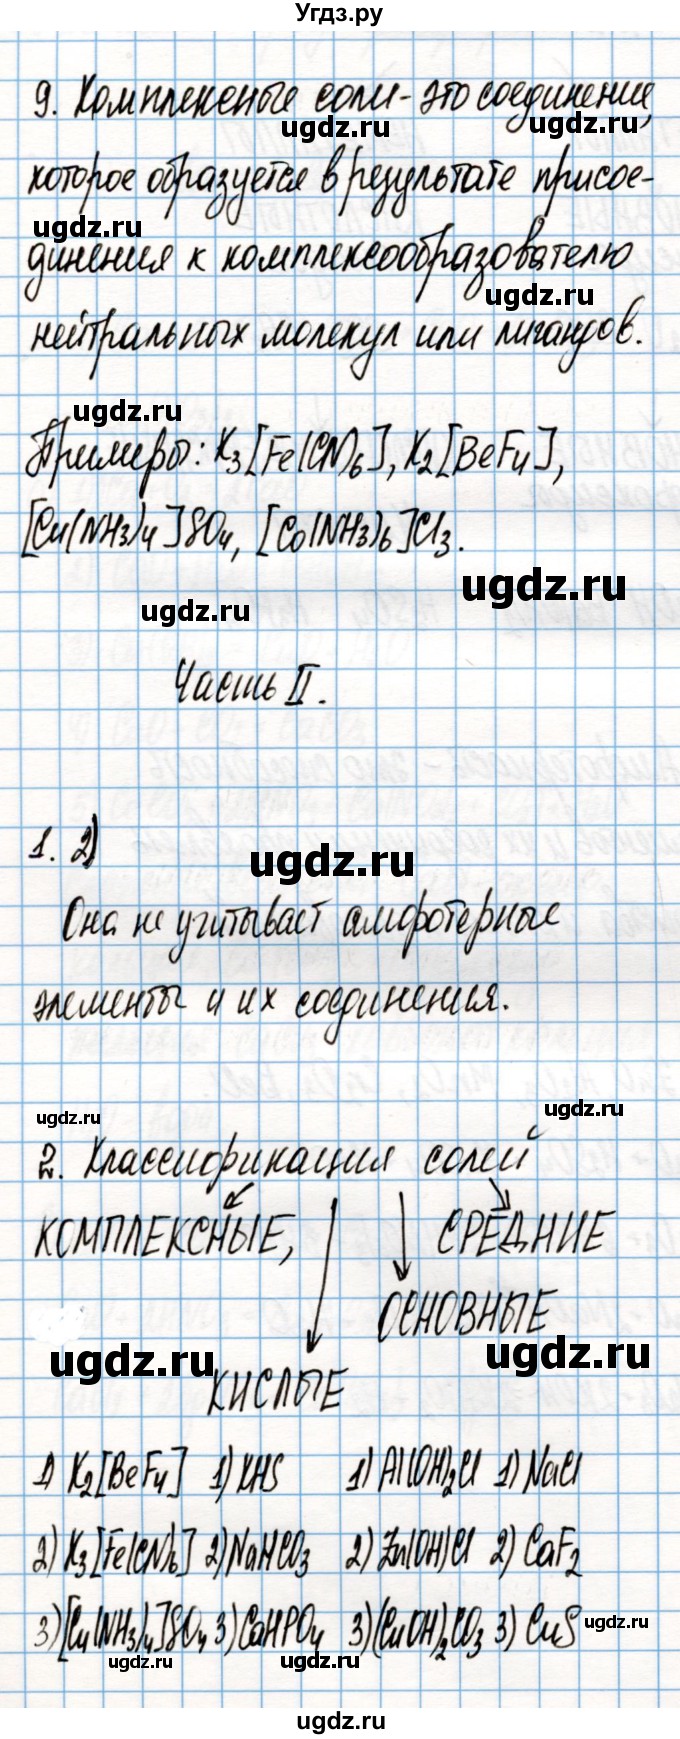 Угдз.ру
9. Комплексные соли - это соединение,
ugdz.ru ugdz.ru
которое образуется в результате присое-
ugdz.ru
динения к комплексообразователю
ugdz.ru
нейтральных молекул или лигандов.
ugdz.ru
Примеры: K3[Fe(CN)6], K2[BeF4],
[Cu(NH3)4]SO4, [Co(NH3)6]Cl3.
ugdz.ru
ugdz.ru
Часть II.
1. 2)
ugdz.ru
Она не учитывает амфотерные
элементы и их соединения.
ugdz.ru
ugdz.ru
2. Классификация солей
КОМПЛЕКСНЫЕ, СРЕДНИЕ
ОСНОВНЫЕ
ugdz.ru ugdz.ru
КИСЛЫЕ
1) K2[BeF4] 1) KHS 1) Al(OH)2Cl 1) NaCl
2) K3[Fe(CN)6] 2) NaHCO3 2) Zn(OH)Cl 2) CaF2
3) [Cu(NH3)4]SO4 3) CaHPO4 3) (CuOH)2CO3 3) CuS
ugdz.ru
ugdz.ru ugdz.ru
ugdz.ru